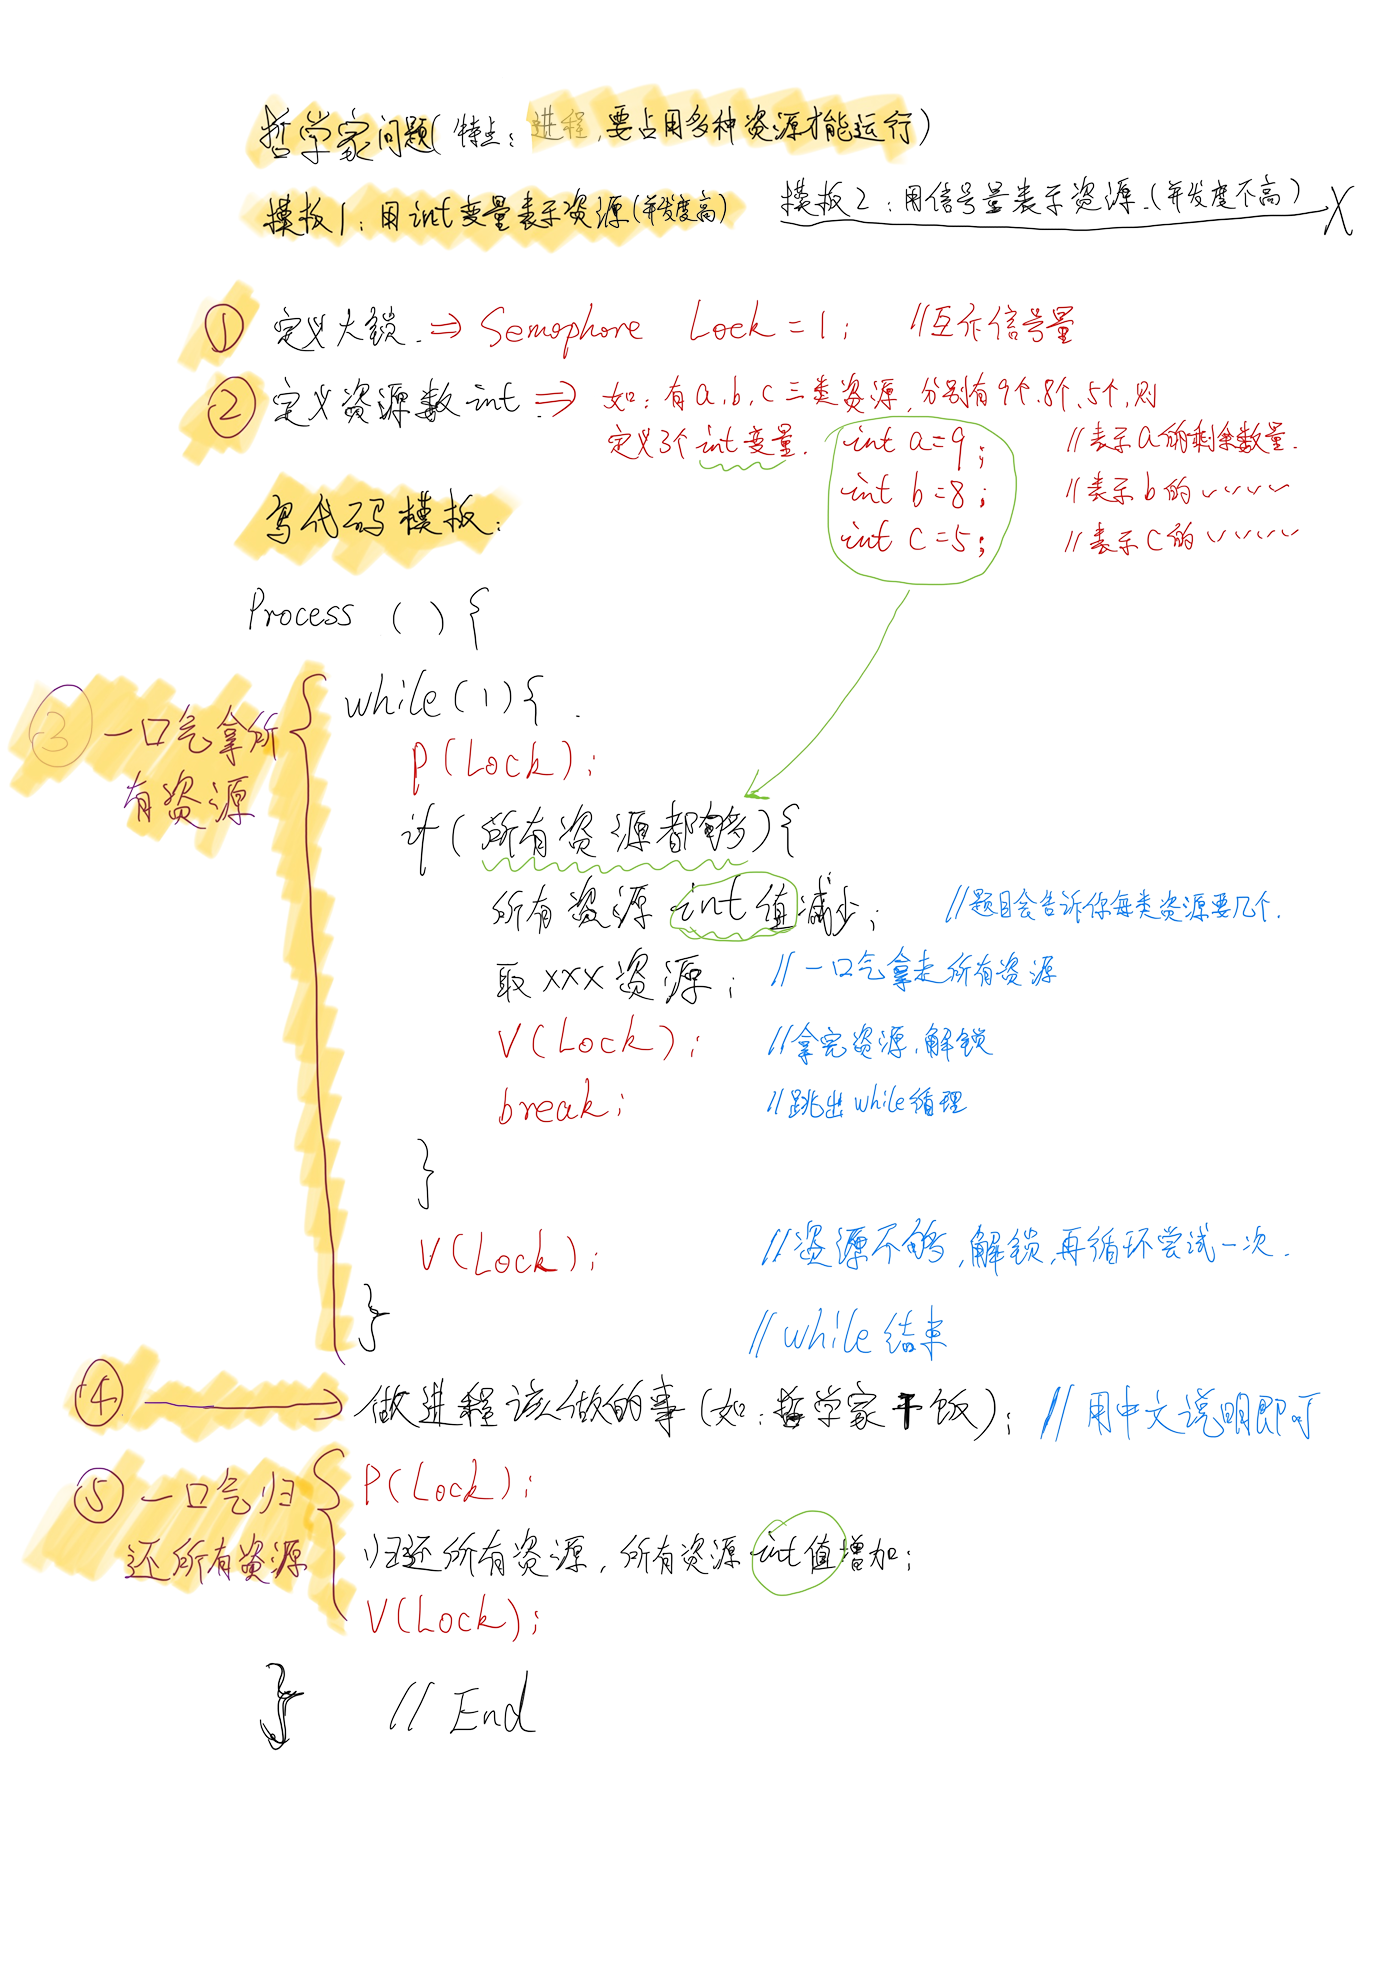 哲学家问题(特点：进程,要占用多种资源才能运行)
模板1：用int变量表示资源(并发度高) 模板2：用信号量表示资源.(并发度不高) X
① 定义大锁. ⇒ Semaphore Lock = 1; //互斥信号量
② 定义资源数int ⇒ 如：有a,b,c三类资源,分别有9个、8个、5个,则
定义3个int变量. int a=9; //表示a的剩余数量.
int b=8; //表示b的 〃〃
int c=5; //表示c的 〃〃
写代码模板：
Process ( ) {
while(1){
③ 一口气拿所
有资源
P(Lock);
if(所有资源都够){
所有资源int值减少; //题目会告诉你每类资源要几个.
取xxx资源; //一口气拿走所有资源
V(Lock); //拿完资源,解锁
break; //跳出while循环
}
V(Lock); //资源不够,解锁,再循环尝试一次.
} //while结束
④ → 做进程该做的事(如：哲学家干饭); //用中文说明即可
⑤ 一口气归
还所有资源
P(Lock);
归还所有资源,所有资源int值增加;
V(Lock);
} // End